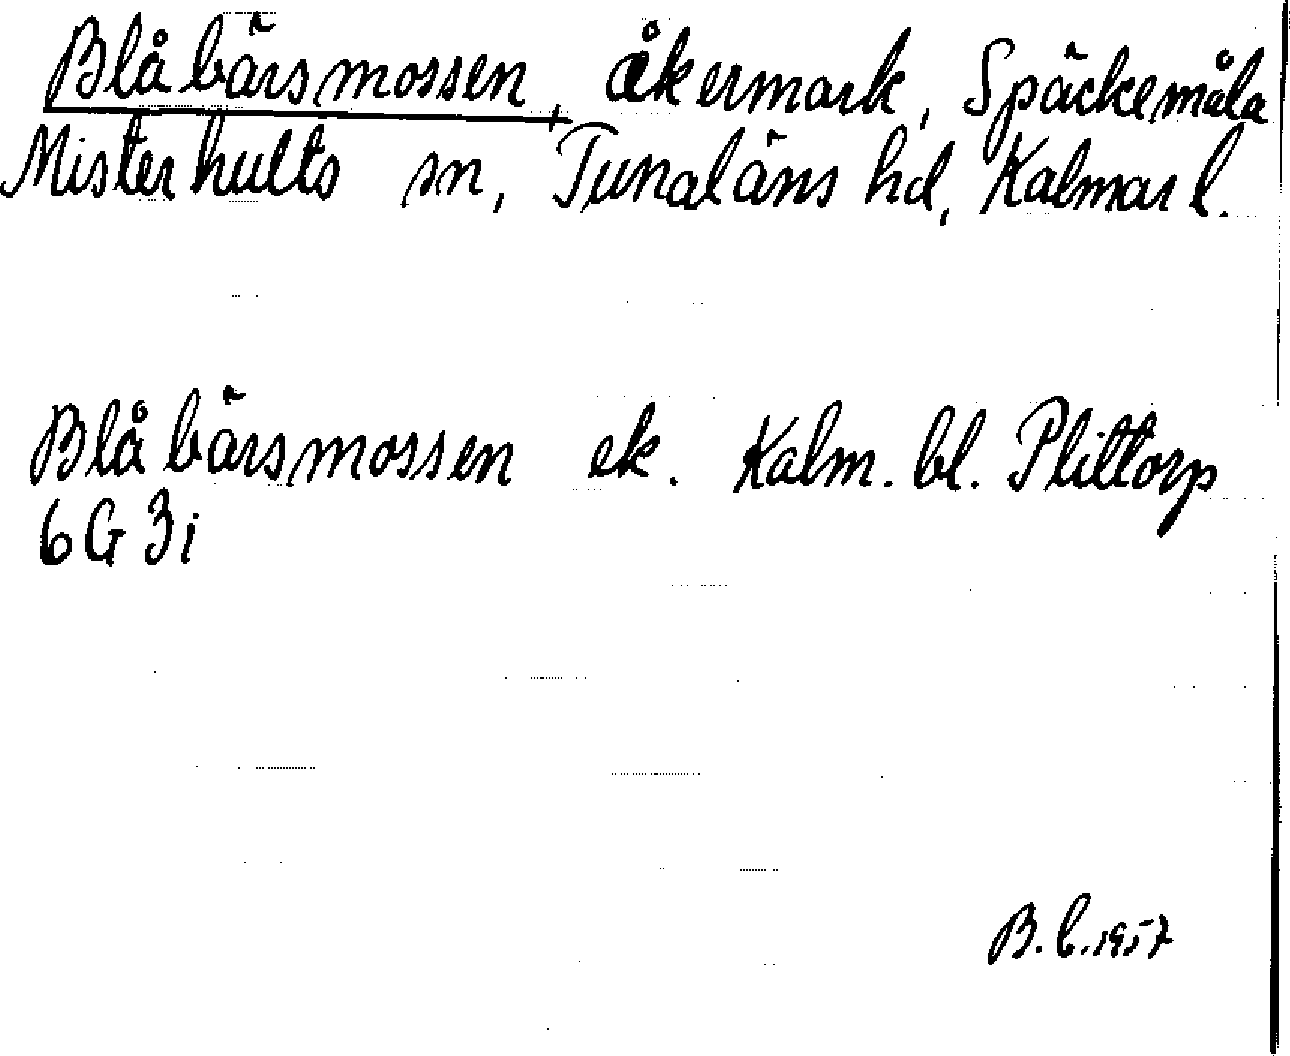 Blåbärsmossen, åkermark, Späckemåla
Misterhults sn, Tunaläns hd, Kalmar l.
Blåbärsmossen ek. Kalm. bl. Plittorp
6G 3i
B. C. 1957